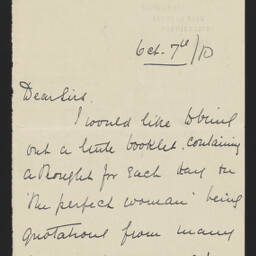 Oct. 7th/10
Dear Sirs.
I would like to bring
out a little booklet, containing
a thought for each day on
"the perfect woman" being
quotations from many